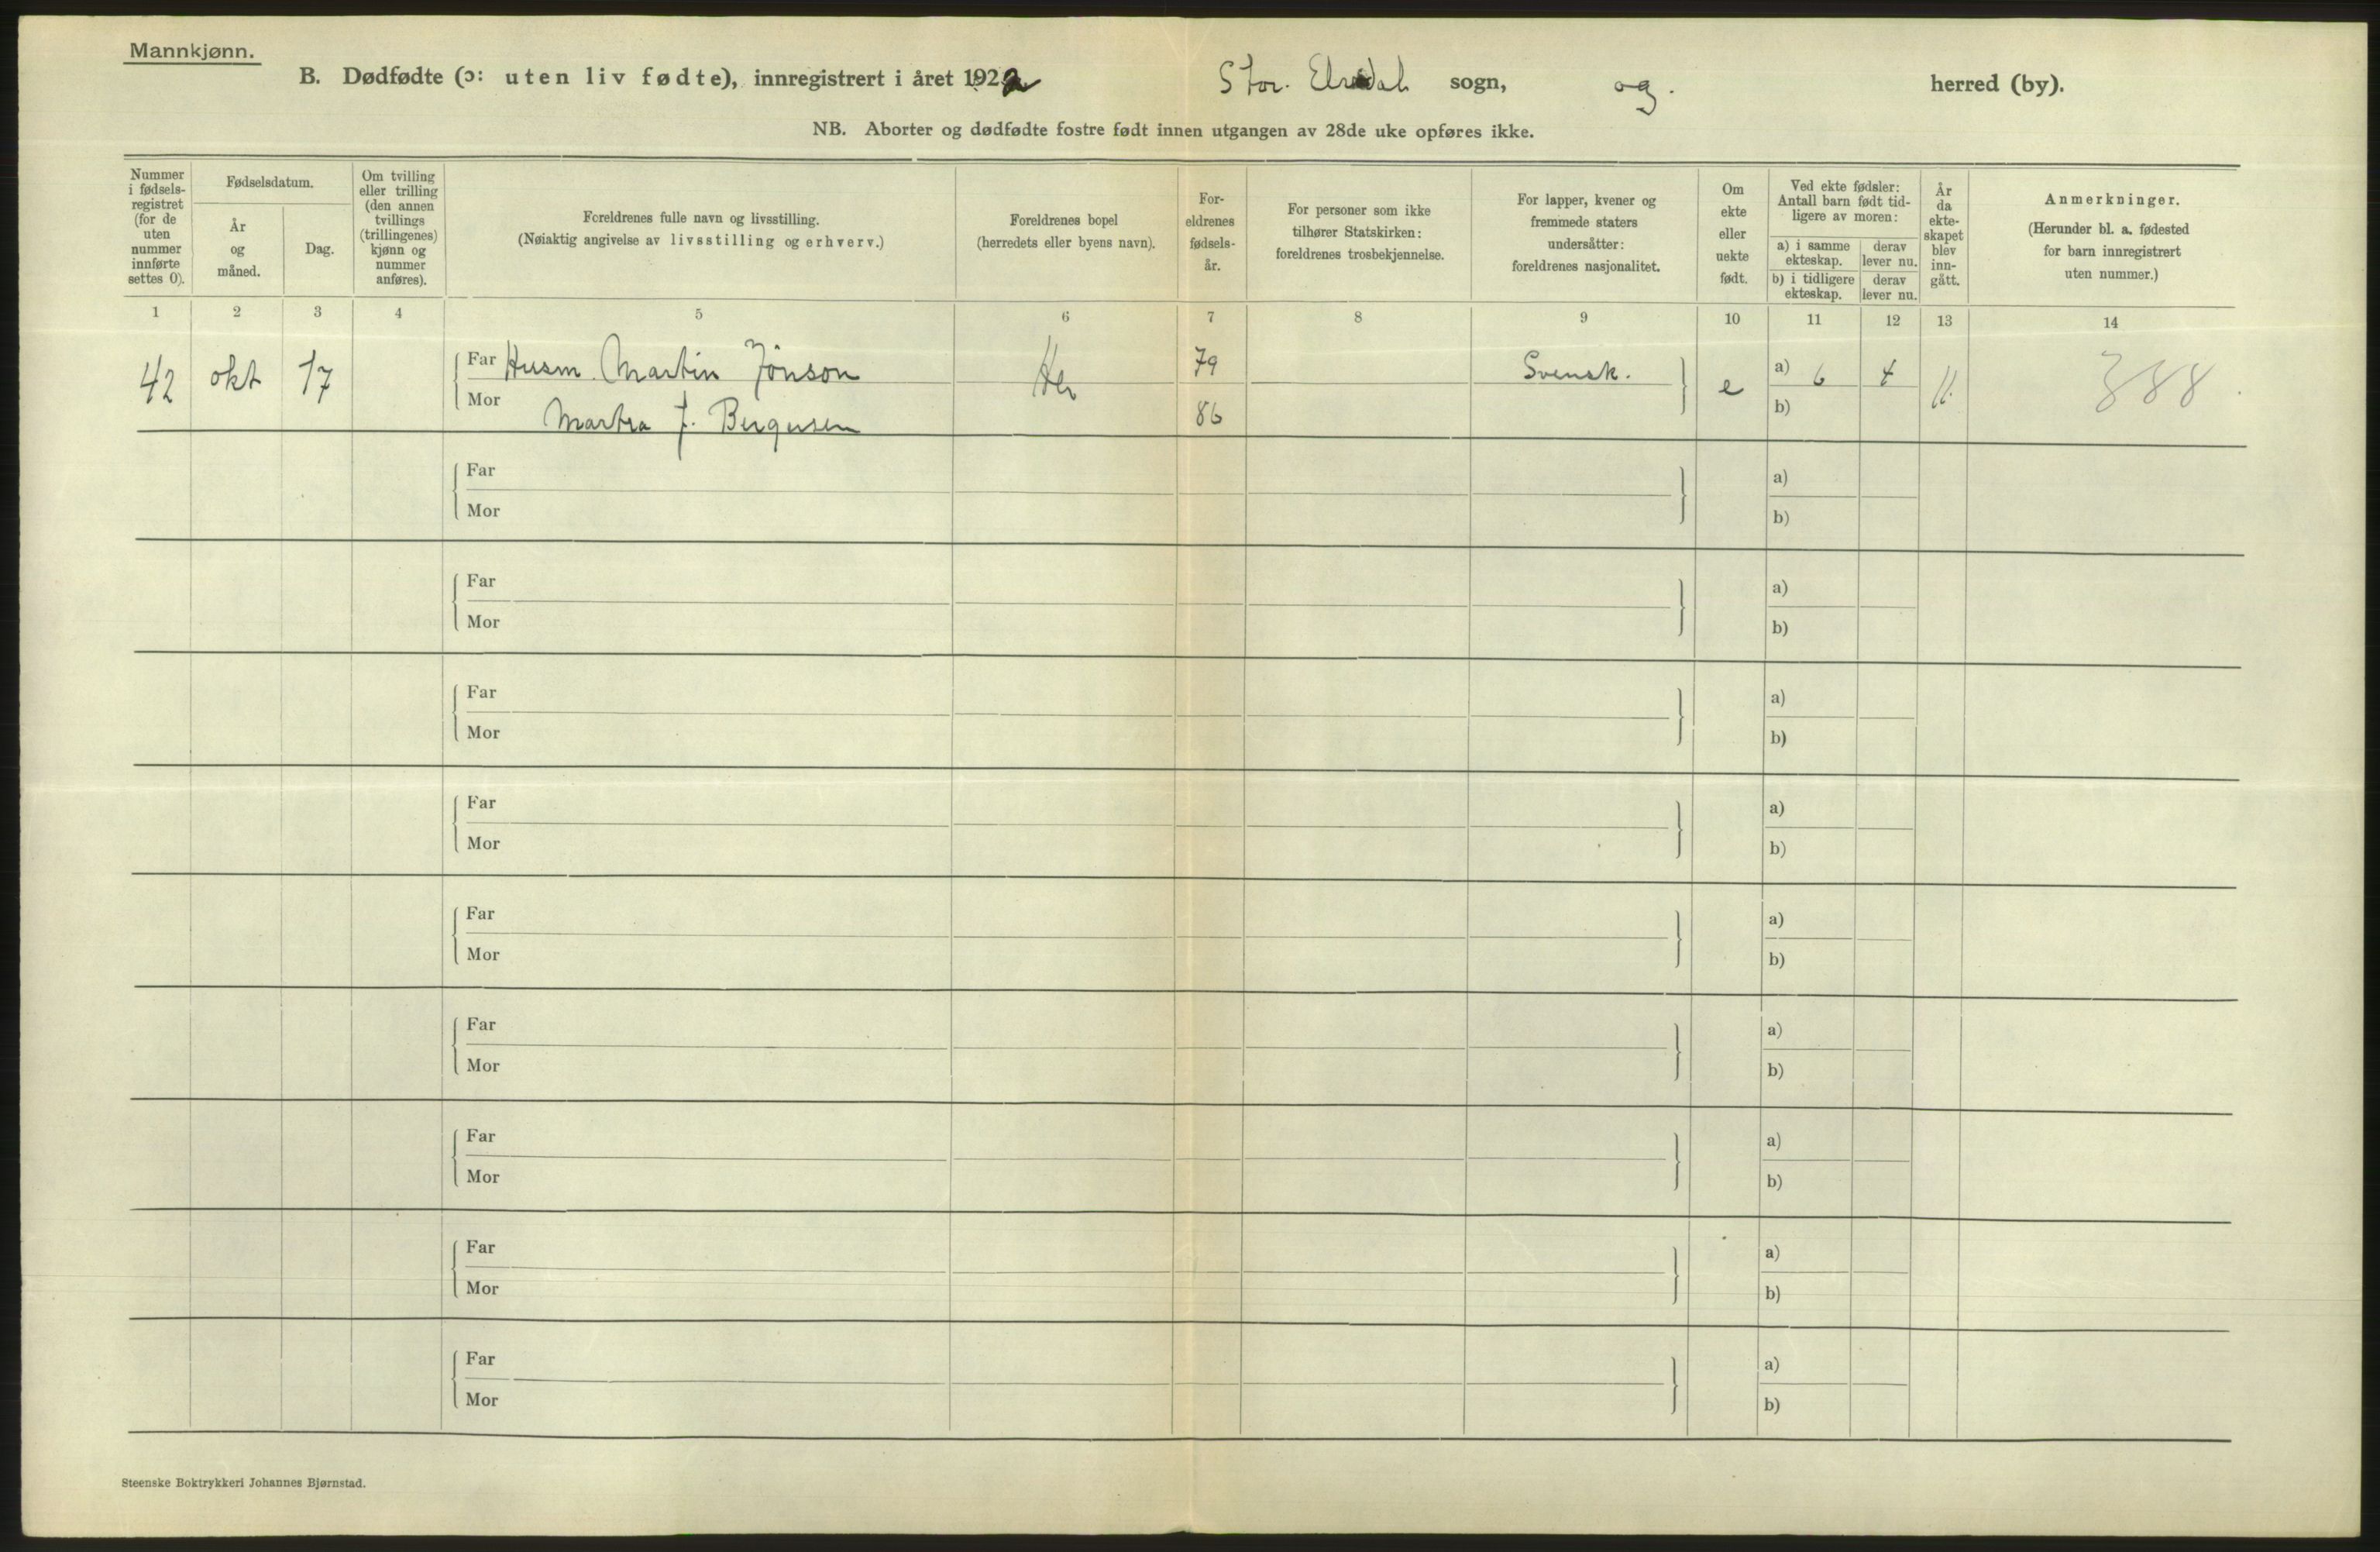 Mannkjønn.
B. Dødfødte (ɔ: uten liv fødte), innregistrert i året 1922 Stor. Elvdal sogn, og. herred (by).
NB. Aborter og dødfødte fostre født innen utgangen av 28de uke opføres ikke.
Nummer i fødsels-registret (for de uten nummer innførte settes 0).
Fødselsdatum.
År og måned.
Dag.
Om tvilling eller trilling (den annen tvillings (trillingenes) kjønn og nummer anføres).
Foreldrenes fulle navn og livsstilling.
(Nøiaktig angivelse av livsstilling og erhverv.)
Foreldrenes bopel
(herredets eller byens navn).
For-eldrenes fødsels-år.
For personer som ikke tilhører Statskirken: foreldrenes trosbekjennelse.
For lapper, kvener og fremmede staters undersåtter: foreldrenes nasjonalitet.
Om ekte eller uekte født.
Ved ekte fødsler: Antall barn født tid-ligere av moren:
a) i samme ekteskap.
derav lever nu.
b) i tidligere ekteskap.
derav lever nu.
År da ekte-skapet blev inn-gått.
Anmerkninger.
(Herunder bl. a. fødested for barn innregistrert uten nummer.)
1 2 3 4 5 6 7 8 9 10 11 12 13 14
42 okt 17 Far Husm. Martin Jönson Her 79 Svensk. e a) 6 4 11. 388
Mor Martea J. Bergersen 86 b)
Far a)
Mor b)
Far a)
Mor b)
Far a)
Mor b)
Far a)
Mor b)
Far a)
Mor b)
Far a)
Mor b)
Far a)
Mor b)
Far a)
Mor b)
Far a)
Mor b)
Steenske Boktrykkeri Johannes Bjørnstad.